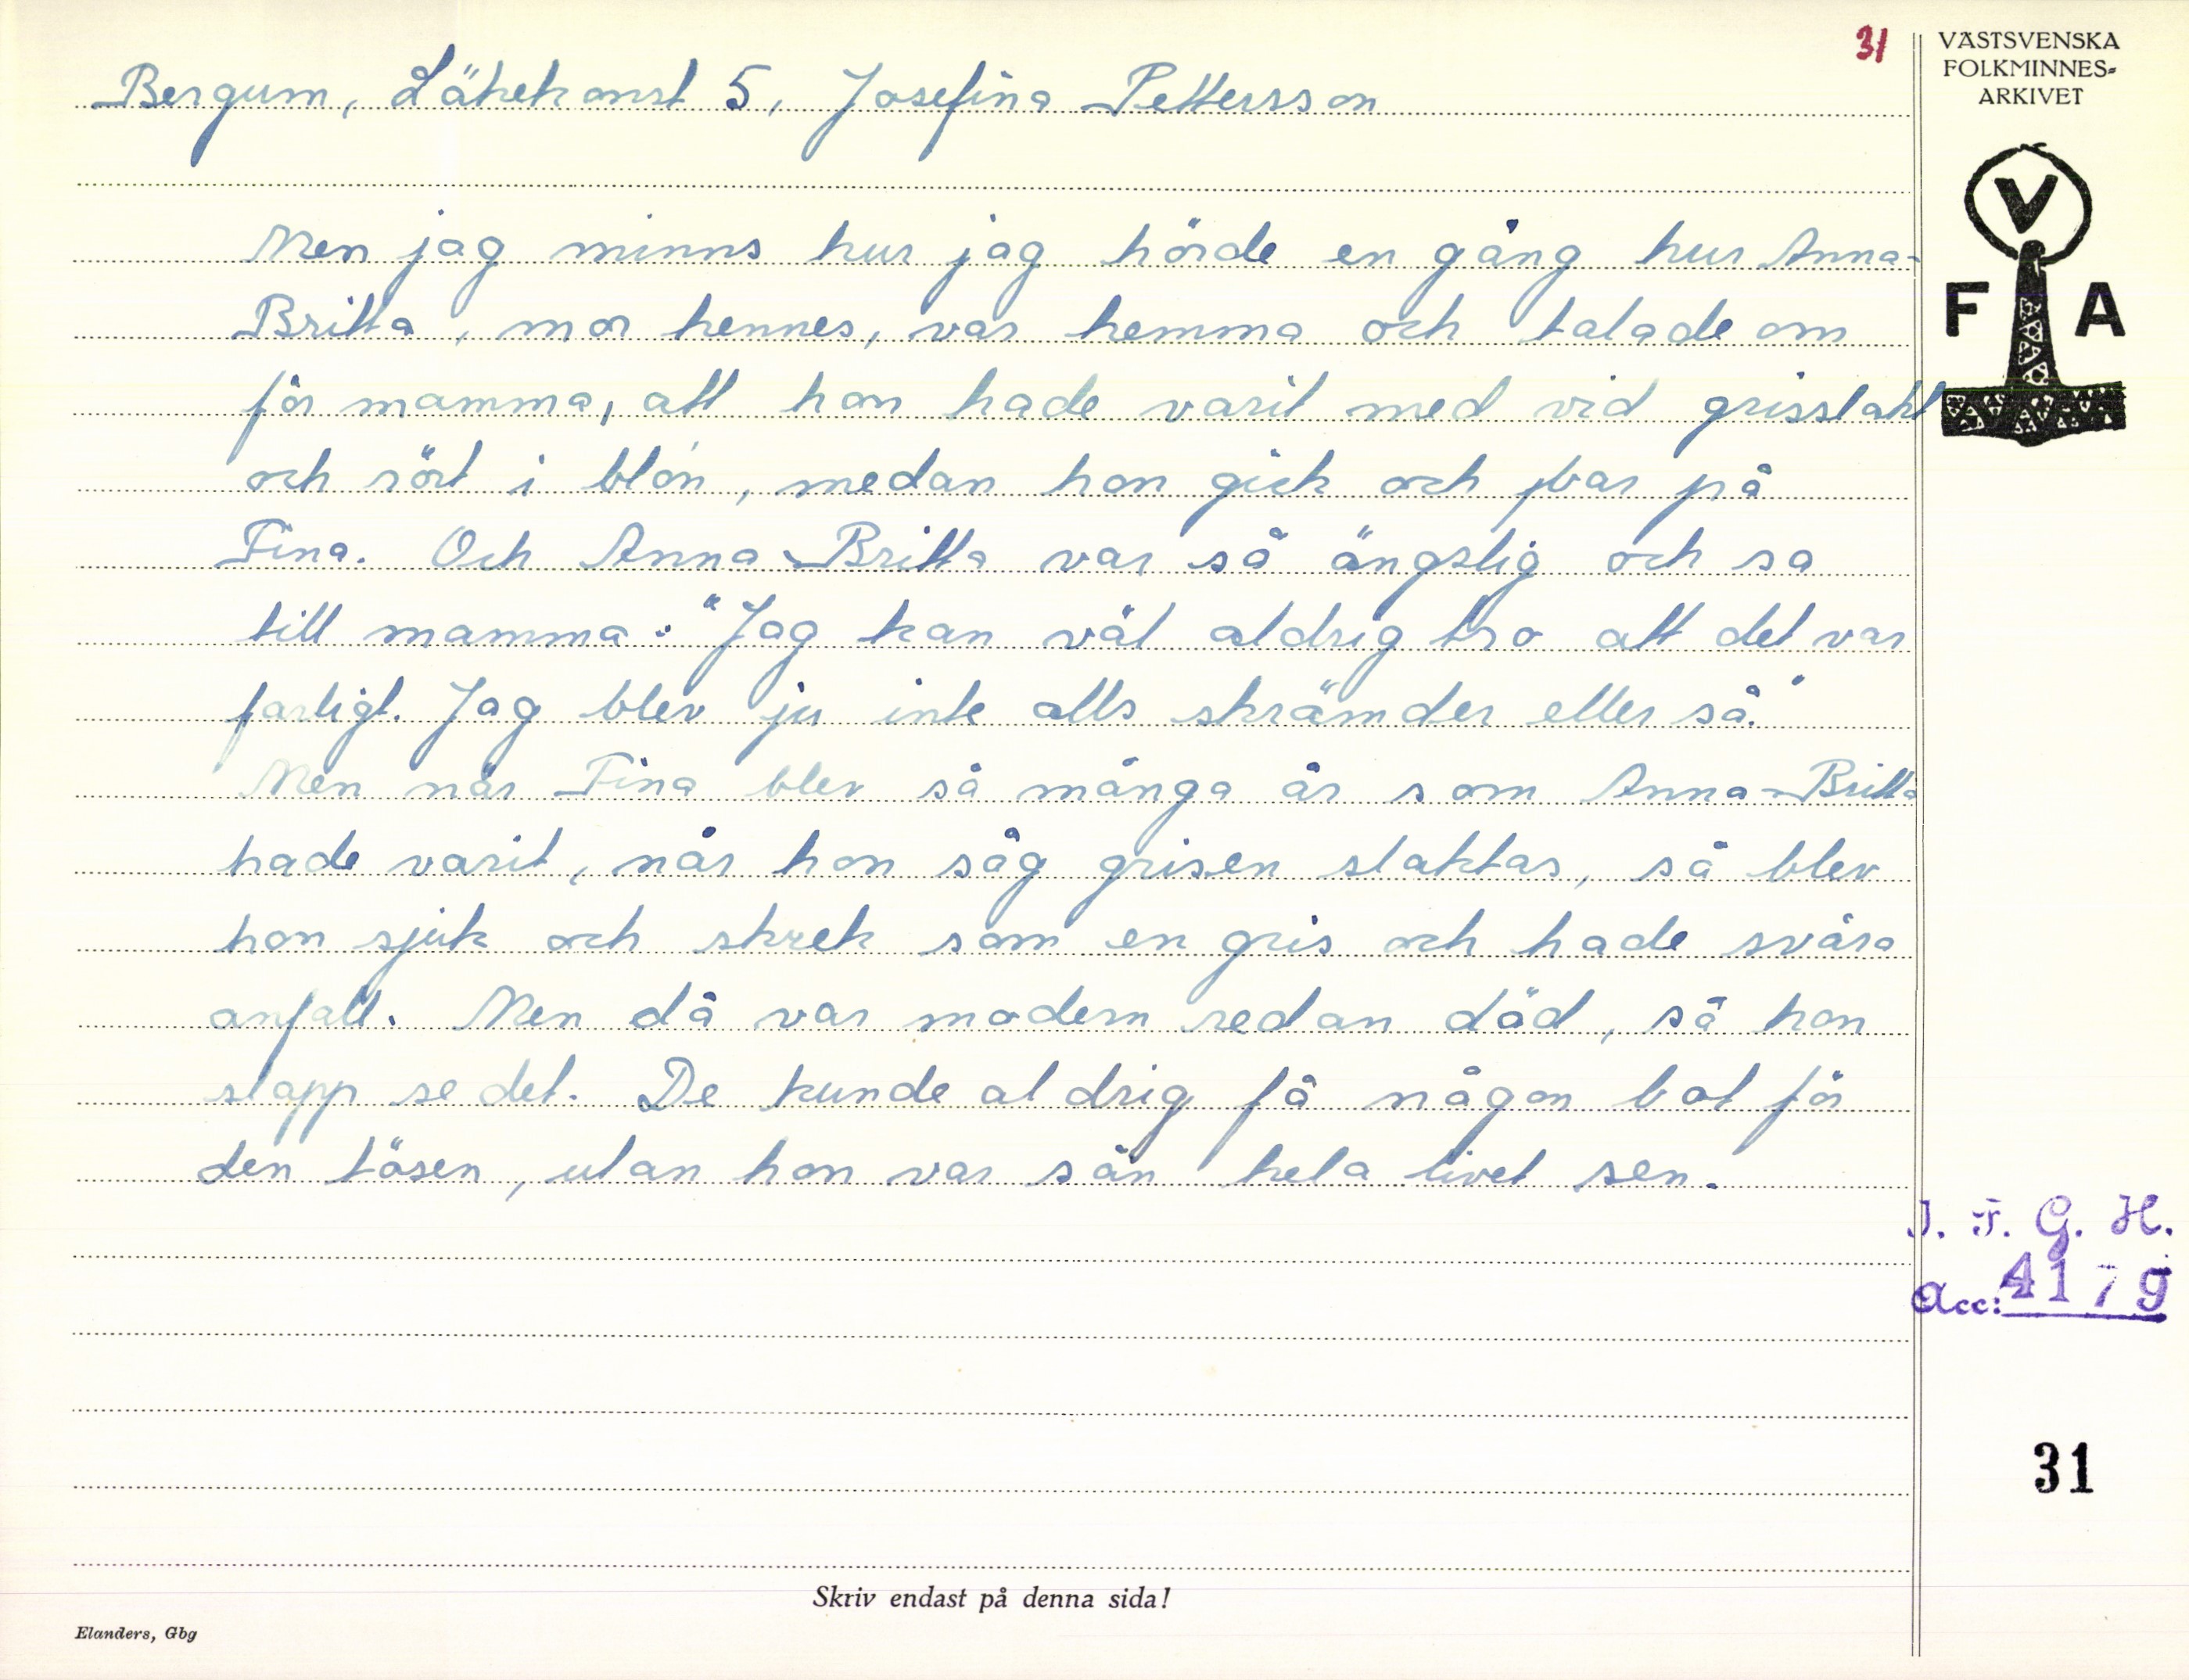 31
VÄSTSVENSKA
FOLKMINNES-
ARKIVET
V
F A
Bergum, Läkekonst 5, Josefina Pettersson
Men jag minns hur jag hörde en gång hur Anna-
Britta, mor hennes, var hemma och talade om
för mamma, att hon hade varit med vid grisslakt
och rört i blon, medan hon gick och bar på
Fina. Och Anna-Britta var så ängslig och sa
till mamma: "Jag kan väl aldrig tro att det var
farligt. Jag blev ju inte alls skrämder eller så."
Men när Fina blev så många år som Anna-Britta
hade varit, när hon såg grisen slaktas, så blev
hon sjuk och skrek som en gris och hade svåra
anfall. Men då var modern redan död, så hon
slapp se det. De kunde aldrig få någon bot för
den tösen, utan hon var sån hela livet sen.
I. F. G. H.
Acc: 4179
31
Skriv endast på denna sida!
Elanders, Gbg